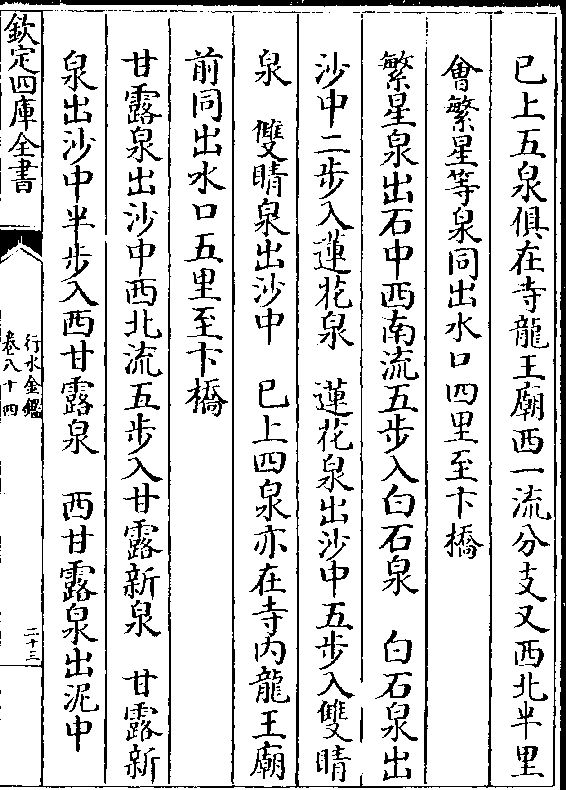 已上五泉俱在寺龍王廟西一流分支又西北半里
會繁星等泉同出水口四里至卞橋
繁星泉出石中西南流五步入白石泉　白石泉出
沙中二步入蓮花泉　蓮花泉出沙中五步入雙睛
泉　雙睛泉出沙中　已上四泉亦在寺内龍王廟
前同出水口五里至卞橋
甘露泉出沙中西北流五步入甘露新泉　甘露新
泉出沙中半步入西甘露泉　西甘露泉出泥中
欽定四庫全書
行水金鑑
卷八十四
二十三